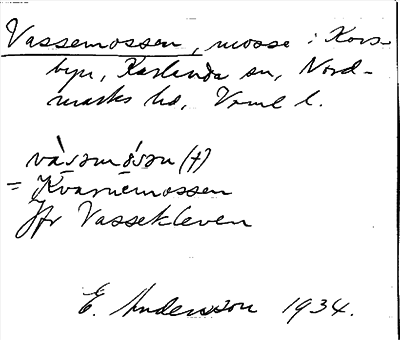 Vassemossen, mosse i Kors-
byn, Karlanda sn, Nord-
marks hd, Vrml l.
và̀sǝmòsǝn (†)
= Kvarnemossen
Jfr Vassekleven
E. Andersson 1934.